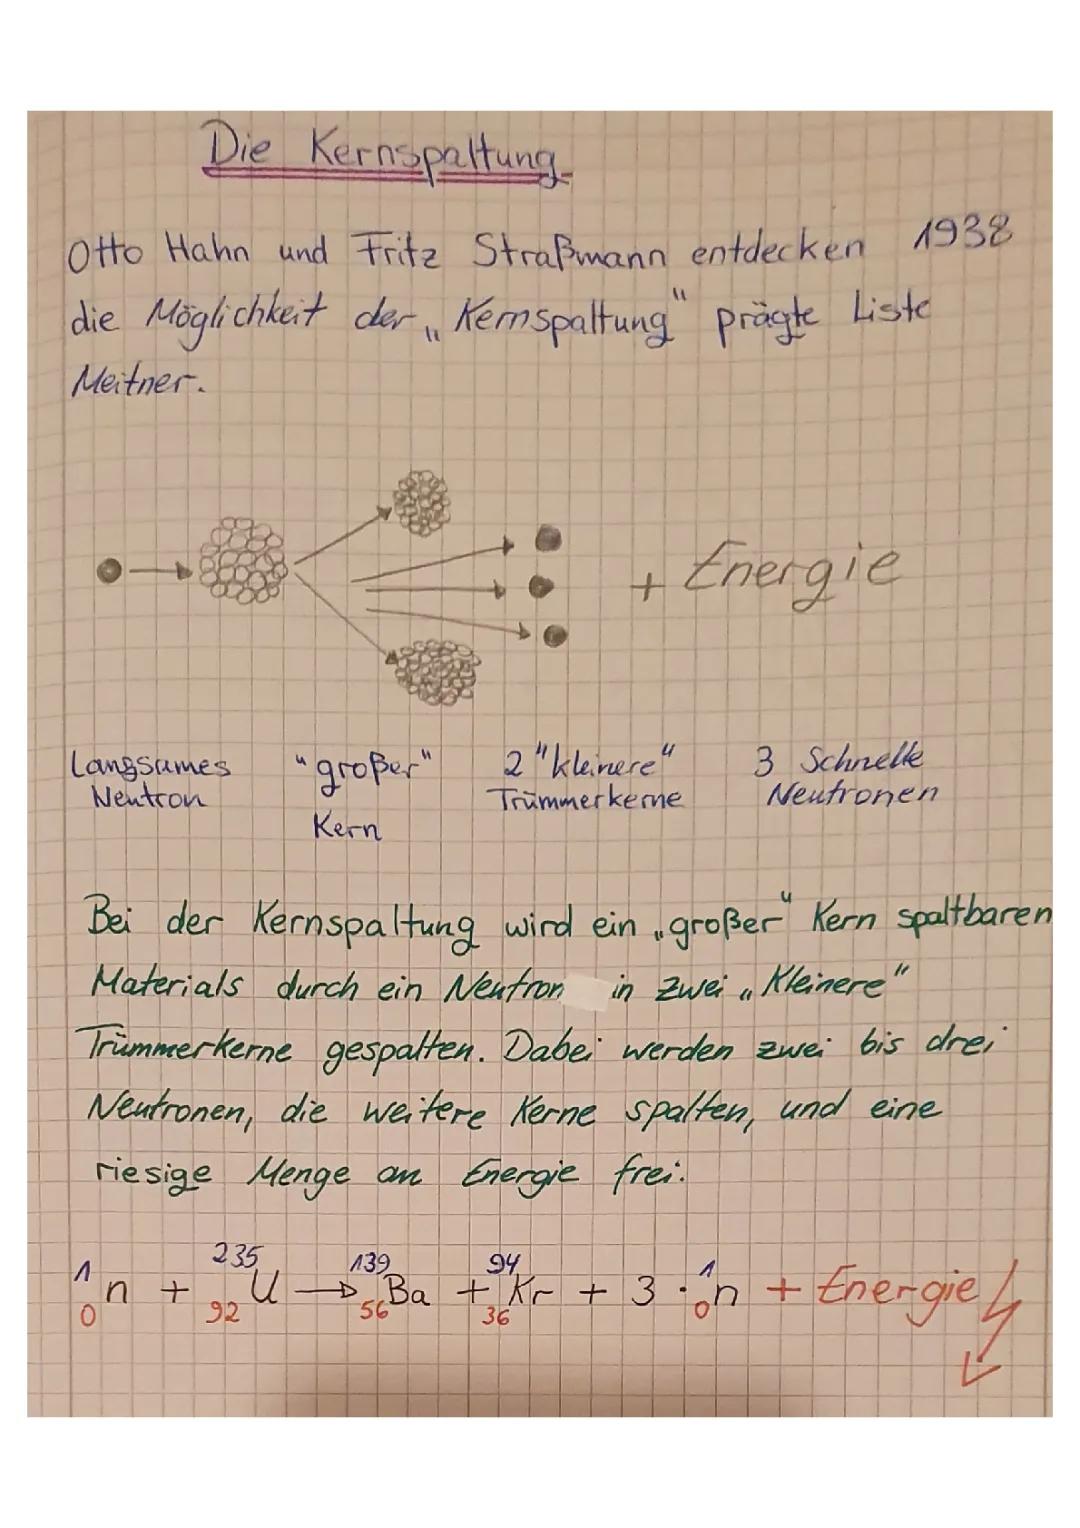 Die Kernspaltung
Otto Hahn und Fritz Straßmann entdecken 1938
die Möglichkeit der „Kernspaltung" prägte Liste
Meitner.
+ Energie
Langsames "großer" 2 "kleinere" 3 Schnelle
Neutron Kern Trümmerkerne Neutronen
Bei der Kernspaltung wird ein „großer" Kern spaltbaren
Materials durch ein Neutron in zwei „Kleinere"
Trümmerkerne gespalten. Dabei werden zwei bis drei
Neutronen, die weitere Kerne spalten, und eine
riesige Menge an Energie frei.
¹₀n + ²³⁵₉₂U → ¹³⁹₅₆Ba + ⁹⁴₃₆Kr + 3 · ¹₀n + Energie